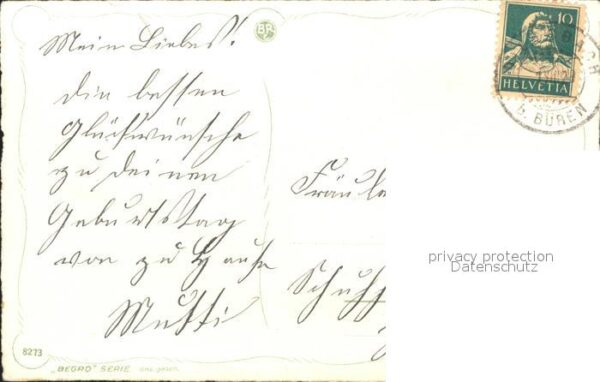 Mein Liebes!
die besten
Glückwünsche
zu deinen
Geburtstag
von zu Hause
Mutti
BR
10
HELVETIA
BACH
b. BÜREN
Fräule
Schüpf
privacy protection
Datenschutz
8273
"BEGRO" SERIE ges. gesch.